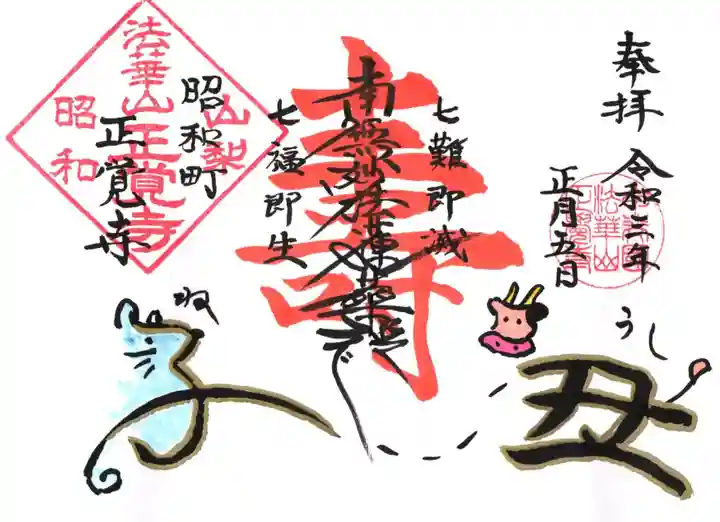 奉拝
令和三年
正月五日
七難即滅
南無妙法蓮華経
壽
七福即生
山梨
法華山正覚寺
昭和
昭和町
正覚寺
うし
丑
ね
子
で